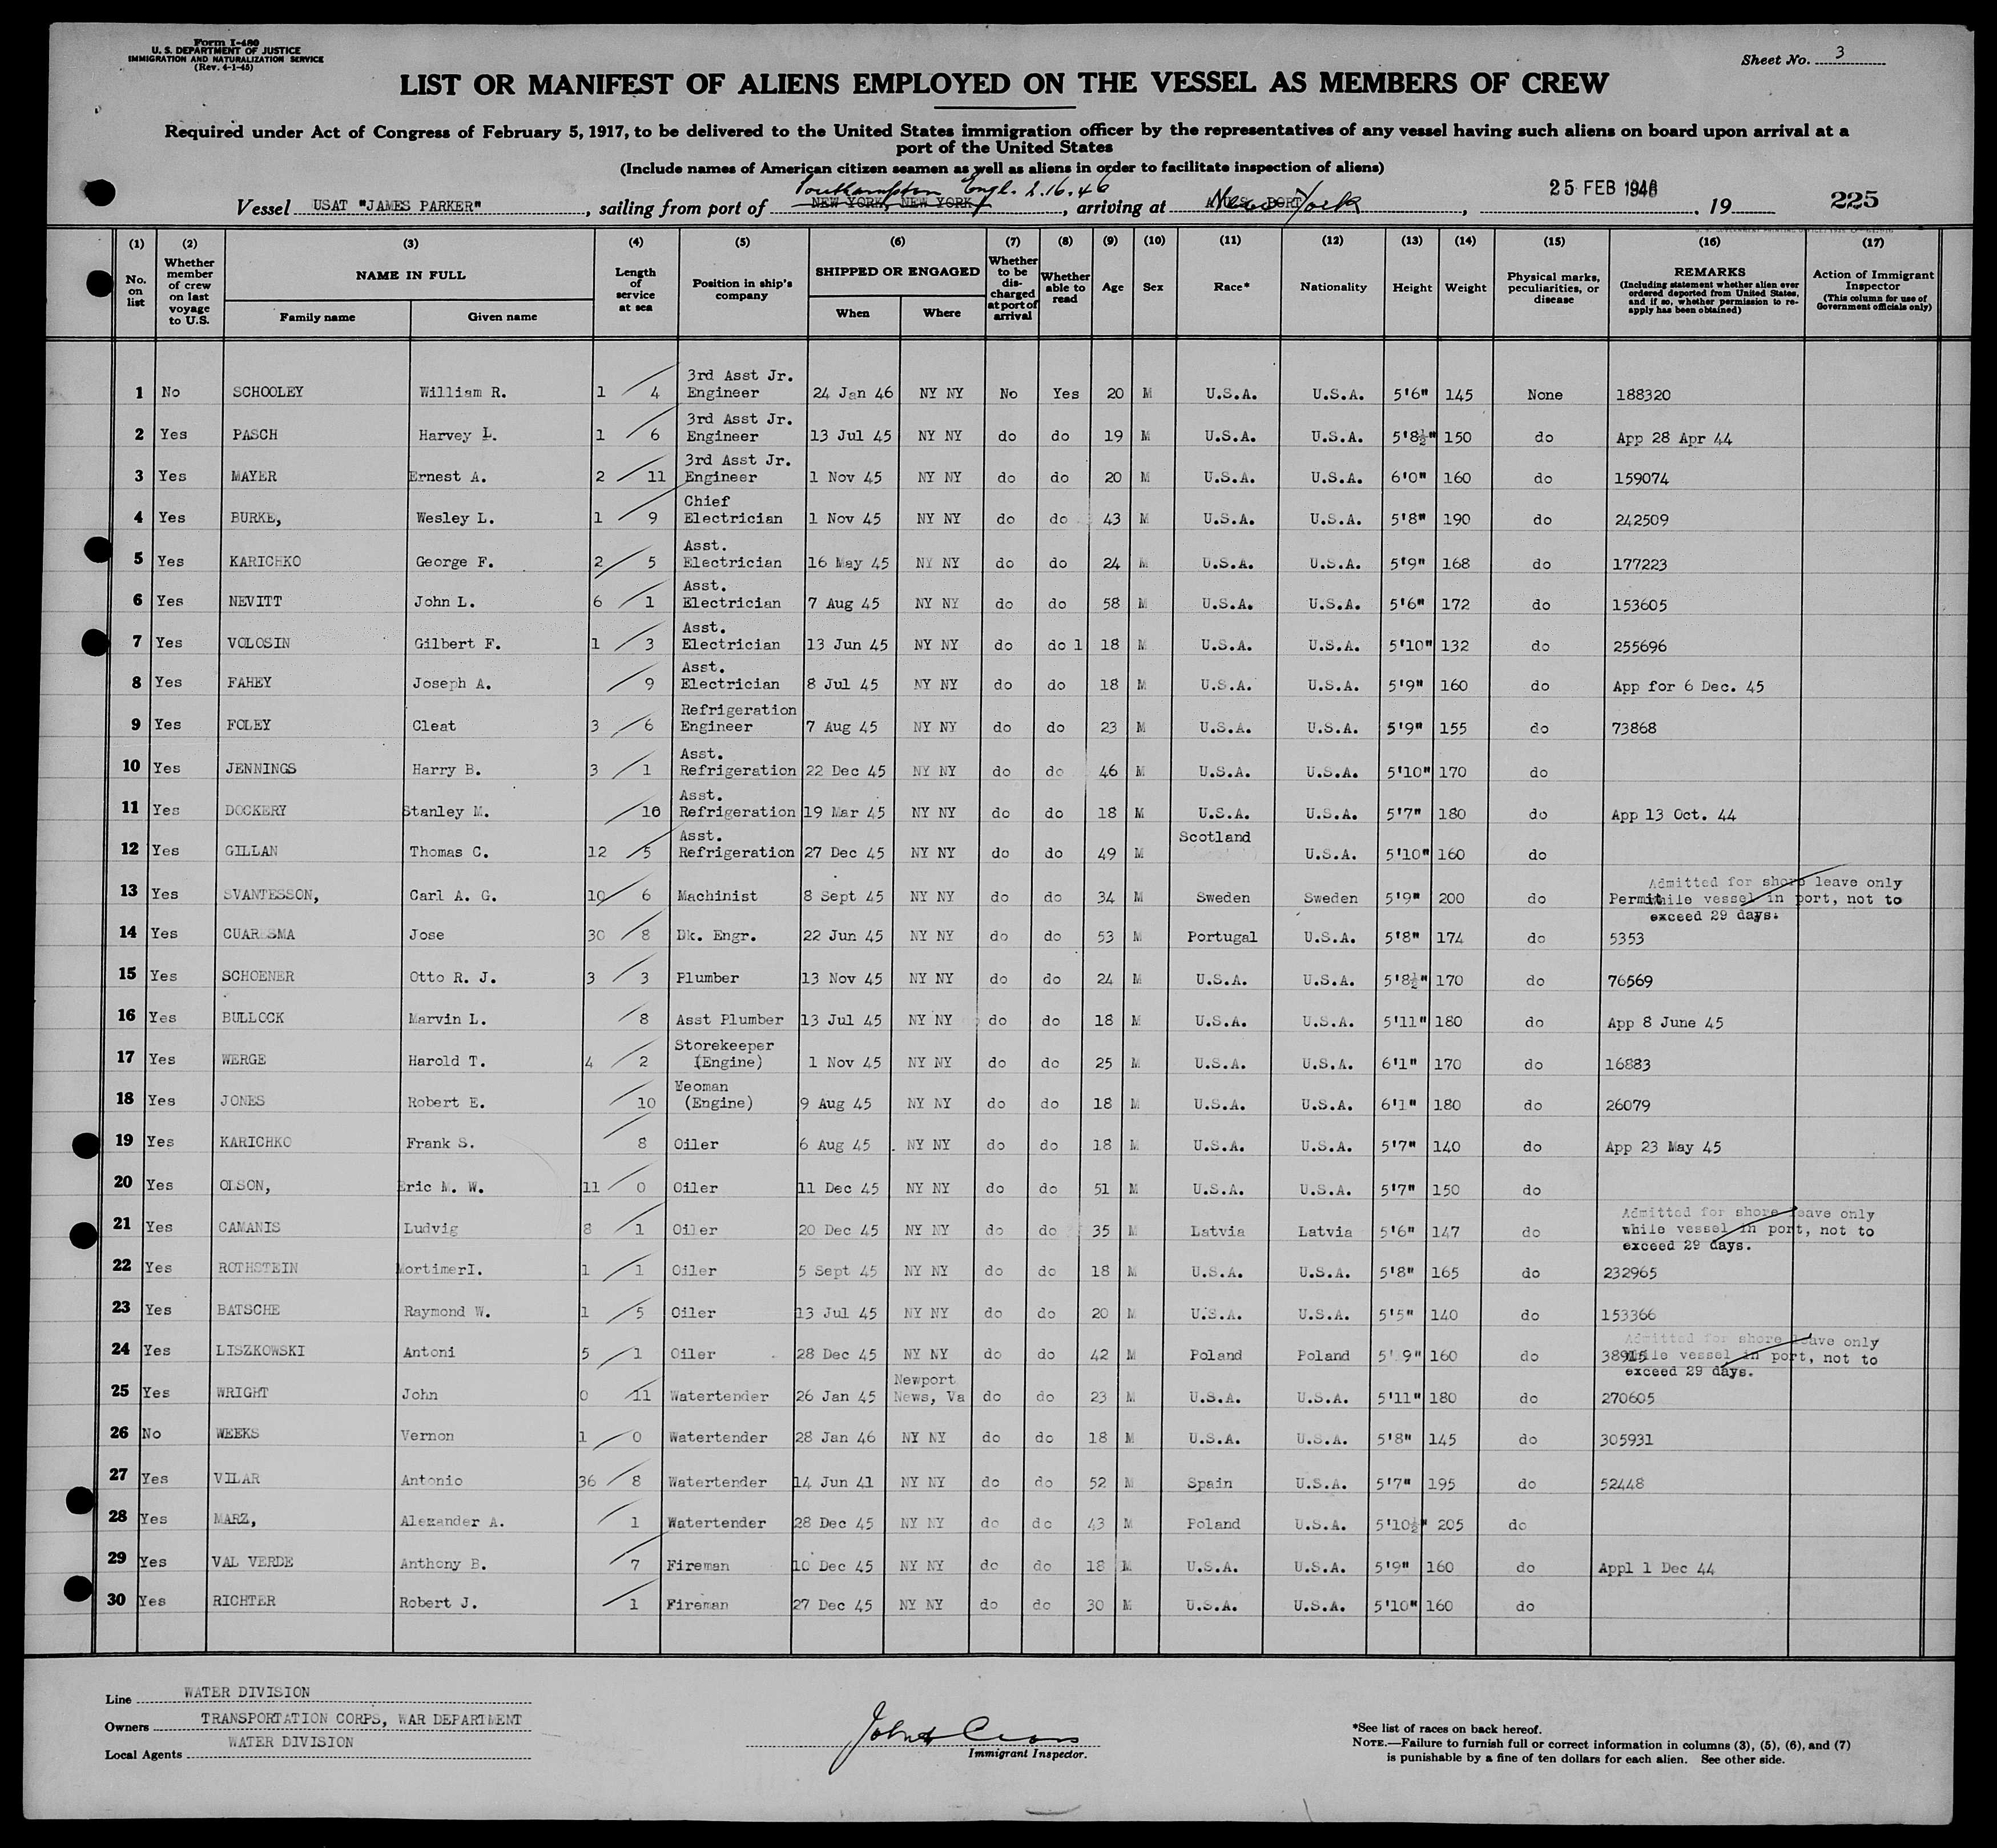 Form I-480
U. S. DEPARTMENT OF JUSTICE
IMMIGRATION AND NATURALIZATION SERVICE
(Rev. 4-1-45)
Sheet No. 3
LIST OR MANIFEST OF ALIENS EMPLOYED ON THE VESSEL AS MEMBERS OF CREW
Required under Act of Congress of February 5, 1917, to be delivered to the United States immigration officer by the representatives of any vessel having such aliens on board upon arrival at a
port of the United States
(Include names of American citizen seamen as well as aliens in order to facilitate inspection of aliens)
Southampton Engl. 2.16.46
25 FEB 1946
Vessel USAT "JAMES PARKER", sailing from port of NEW YORK, NEW YORK, arriving at New York, 19 225
(1) No. on list
(2) Whether member of crew on last voyage to U.S.
(3) NAME IN FULL Family name Given name
(4) Length of service at sea
(5) Position in ship's company
(6) SHIPPED OR ENGAGED When Where
(7) Whether to be discharged at port of arrival
(8) Whether able to read
(9) Age
(10) Sex
(11) Race*
(12) Nationality
(13) Height
(14) Weight
(15) Physical marks, peculiarities, or disease
(16) REMARKS (Including statement whether alien ever ordered deported from United States, and if so, whether permission to reapply has been obtained)
(17) Action of Immigrant Inspector (This column for use of Government officials only)
1 No SCHOOLEY William R. 1 / 4 3rd Asst Jr. Engineer 24 Jan 46 NY NY No Yes 20 M U.S.A. U.S.A. 5'6" 145 None 188320
2 Yes PASCH Harvey L. 1 / 6 3rd Asst Jr. Engineer 13 Jul 45 NY NY do do 19 M U.S.A. U.S.A. 5'8½" 150 do App 28 Apr 44
3 Yes MAYER Ernest A. 2 / 11 3rd Asst Jr. Engineer 1 Nov 45 NY NY do do 20 M U.S.A. U.S.A. 6'0" 160 do 159074
4 Yes BURKE, Wesley L. 1 / 9 Chief Electrician 1 Nov 45 NY NY do do 43 M U.S.A. U.S.A. 5'8" 190 do 242509
5 Yes KARICHKO George F. 2 / 5 Asst. Electrician 16 May 45 NY NY do do 24 M U.S.A. U.S.A. 5'9" 168 do 177223
6 Yes NEVITT John L. 6 / 1 Asst. Electrician 7 Aug 45 NY NY do do 58 M U.S.A. U.S.A. 5'6" 172 do 153605
7 Yes VOLOSIN Gilbert F. 1 / 3 Asst. Electrician 13 Jun 45 NY NY do do 1 18 M U.S.A. U.S.A. 5'10" 132 do 255696
8 Yes FAHEY Joseph A. / 9 Asst. Electrician 8 Jul 45 NY NY do do 18 M U.S.A. U.S.A. 5'9" 160 do App for 6 Dec. 45
9 Yes FOLEY Cleat 3 / 6 Refrigeration Engineer 7 Aug 45 NY NY do do 23 M U.S.A. U.S.A. 5'9" 155 do 73868
10 Yes JENNINGS Harry B. 3 / 1 Asst. Refrigeration 22 Dec 45 NY NY do do 46 M U.S.A. U.S.A. 5'10" 170 do
11 Yes DOCKERY Stanley M. / 10 Asst. Refrigeration 19 Mar 45 NY NY do do 18 M U.S.A. U.S.A. 5'7" 180 do App 13 Oct. 44
12 Yes GILLAN Thomas C. 12 / 5 Asst. Refrigeration 27 Dec 45 NY NY do do 49 M Scotland U.S.A. 5'10" 160 do
13 Yes SVANTESSON, Carl A. G. 10 / 6 Machinist 8 Sept 45 NY NY do do 34 M Sweden Sweden 5'9" 200 do Permit Admitted for shore leave only while vessel in port, not to exceed 29 days.
14 Yes CUARESMA Jose 30 / 8 Dk. Engr. 22 Jun 45 NY NY do do 53 M Portugal U.S.A. 5'8" 174 do 5353
15 Yes SCHOENER Otto R. J. 3 / 3 Plumber 13 Nov 45 NY NY do do 24 M U.S.A. U.S.A. 5'8½" 170 do 76569
16 Yes BULLOCK Marvin L. / 8 Asst Plumber 13 Jul 45 NY NY do do 18 M U.S.A. U.S.A. 5'11" 180 do App 8 June 45
17 Yes WERGE Harold T. 4 / 2 Storekeeper (Engine) 1 Nov 45 NY NY do do 25 M U.S.A. U.S.A. 6'1" 170 do 16883
18 Yes JONES Robert E. / 10 Yeoman (Engine) 9 Aug 45 NY NY do do 18 M U.S.A. U.S.A. 6'1" 180 do 26079
19 Yes KARICHKO Frank S. / 8 Oiler 6 Aug 45 NY NY do do 18 M U.S.A. U.S.A. 5'7" 140 do App 23 May 45
20 Yes OLSON, Eric M. W. 11 / 0 Oiler 11 Dec 45 NY NY do do 51 M U.S.A. U.S.A. 5'7" 150 do
21 Yes CAMANIS Ludvig 8 / 1 Oiler 20 Dec 45 NY NY do do 35 M Latvia Latvia 5'6" 147 do Admitted for shore leave only while vessel in port, not to exceed 29 days.
22 Yes ROTHSTEIN MortimerI. 1 / 1 Oiler 5 Sept 45 NY NY do do 18 M U.S.A. U.S.A. 5'8" 165 do 232965
23 Yes BATSCHE Raymond W. 1 / 5 Oiler 13 Jul 45 NY NY do do 20 M U.S.A. U.S.A. 5'5" 140 do 153366
24 Yes LISZKOWSKI Antoni 5 / 1 Oiler 28 Dec 45 NY NY do do 42 M Poland Poland 5' 9" 160 do Admitted for shore leave only while vessel in port, not to exceed 29 days.
25 Yes WRIGHT John 0 / 11 Watertender 26 Jan 45 Newport News, Va do do 23 M U.S.A. U.S.A. 5'11" 180 do 270605
26 No WEEKS Vernon 1 / 0 Watertender 28 Jan 46 NY NY do do 18 M U.S.A. U.S.A. 5'8" 145 do 305931
27 Yes VILAR Antonio 36 / 8 Watertender 14 Jun 41 NY NY do do 52 M Spain U.S.A. 5'7" 195 do 52448
28 Yes MARZ, Alexander A. / 1 Watertender 28 Dec 45 NY NY do do 43 M Poland U.S.A. 5'10½" 205 do
29 Yes VAL VERDE Anthony B. / 7 Fireman 10 Dec 45 NY NY do do 18 M U.S.A. U.S.A. 5'9" 160 do Appl 1 Dec 44
30 Yes RICHTER Robert J. / 1 Fireman 27 Dec 45 NY NY do do 30 M U.S.A. U.S.A. 5'10" 160 do
Line WATER DIVISION
Owners TRANSPORTATION CORPS, WAR DEPARTMENT
Local Agents WATER DIVISION
Immigrant Inspector.
*See list of races on back hereof.
NOTE.—Failure to furnish full or correct information in columns (3), (5), (6), and (7)
is punishable by a fine of ten dollars for each alien. See other side.